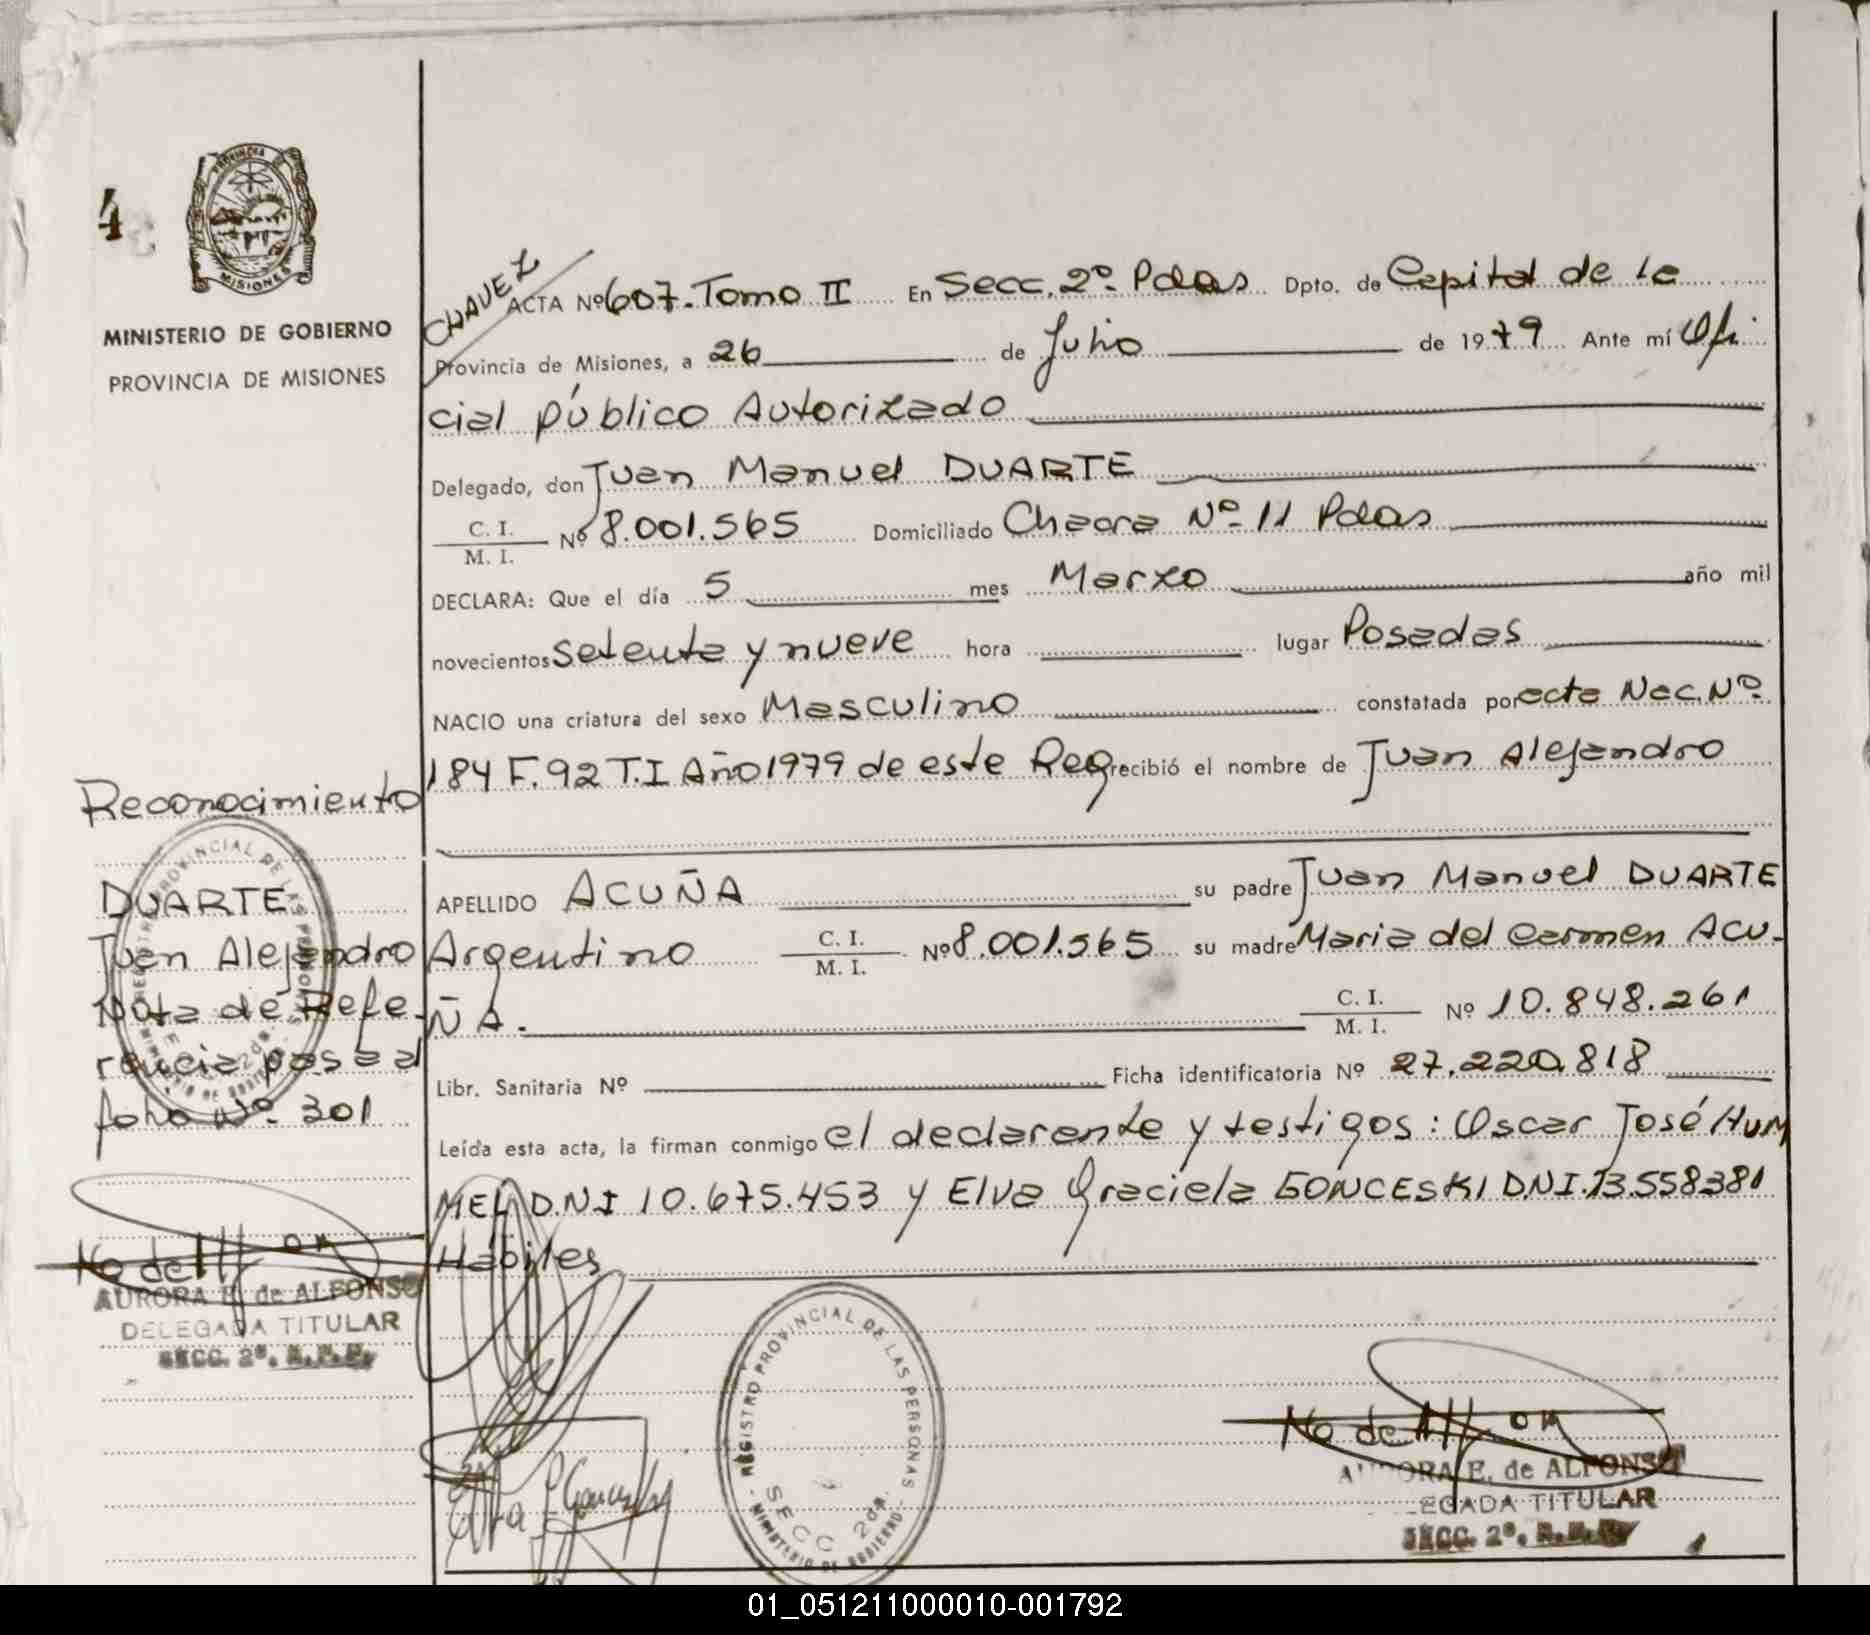 4
PROVINCIA DE
MISIONES
MINISTERIO DE GOBIERNO
PROVINCIA DE MISIONES
CHAVEZ
ACTA Nº 607. Tomo II En Secc. 2º Pdas Dpto. de Capital de la
Provincia de Misiones, a 26 de Julio de 1979 Ante mí Ofi
cial público Autorizado
Delegado, don Juan Manuel DUARTE
C. I.
M. I. Nº 8.001.565 Domiciliado Chacra Nº 11 Pdas
DECLARA: Que el día 5 mes Marzo año mil
novecientos setenta y nueve hora lugar Posadas
NACIO una criatura del sexo Masculino constatada por acta Nac. Nº
184 F. 92 T. I Año 1979 de este Reg recibió el nombre de Juan Alejandro
APELLIDO ACUÑA su padre Juan Manuel DUARTE
Argentino C. I.
M. I. Nº 8.001.565 su madre Maria del Carmen ACU-
ÑA. C. I.
M. I. Nº 10.848.261
Libr. Sanitaria Nº Ficha identificatoria Nº 27.220.818
Leída esta acta, la firman conmigo el declarante y testigos: Oscar José HUM
MEL D.N.I 10.675.453 y Elva Graciela GONCESKI D.N.I. 13.558381
Hábiles
Reconocimiento
DUARTE
Juan Alejandro
Nota de Refe-
rencia pasa al
folio Nº 301
REGISTRO PROVINCIAL DE LAS PERSONAS
MINISTERIO DE GOBIERNO
SECC 2da.
AURORA E. de ALFONSO
DELEGADA TITULAR
SECC. 2º. R.P.P.
REGISTRO PROVINCIAL DE LAS PERSONAS
SECC 2da.
- MINISTERIO DE GOBIERNO -
AURORA E. de ALFONSO
EGADA TITULAR
SECC. 2º. R.P.P.
01_051211000010-001792